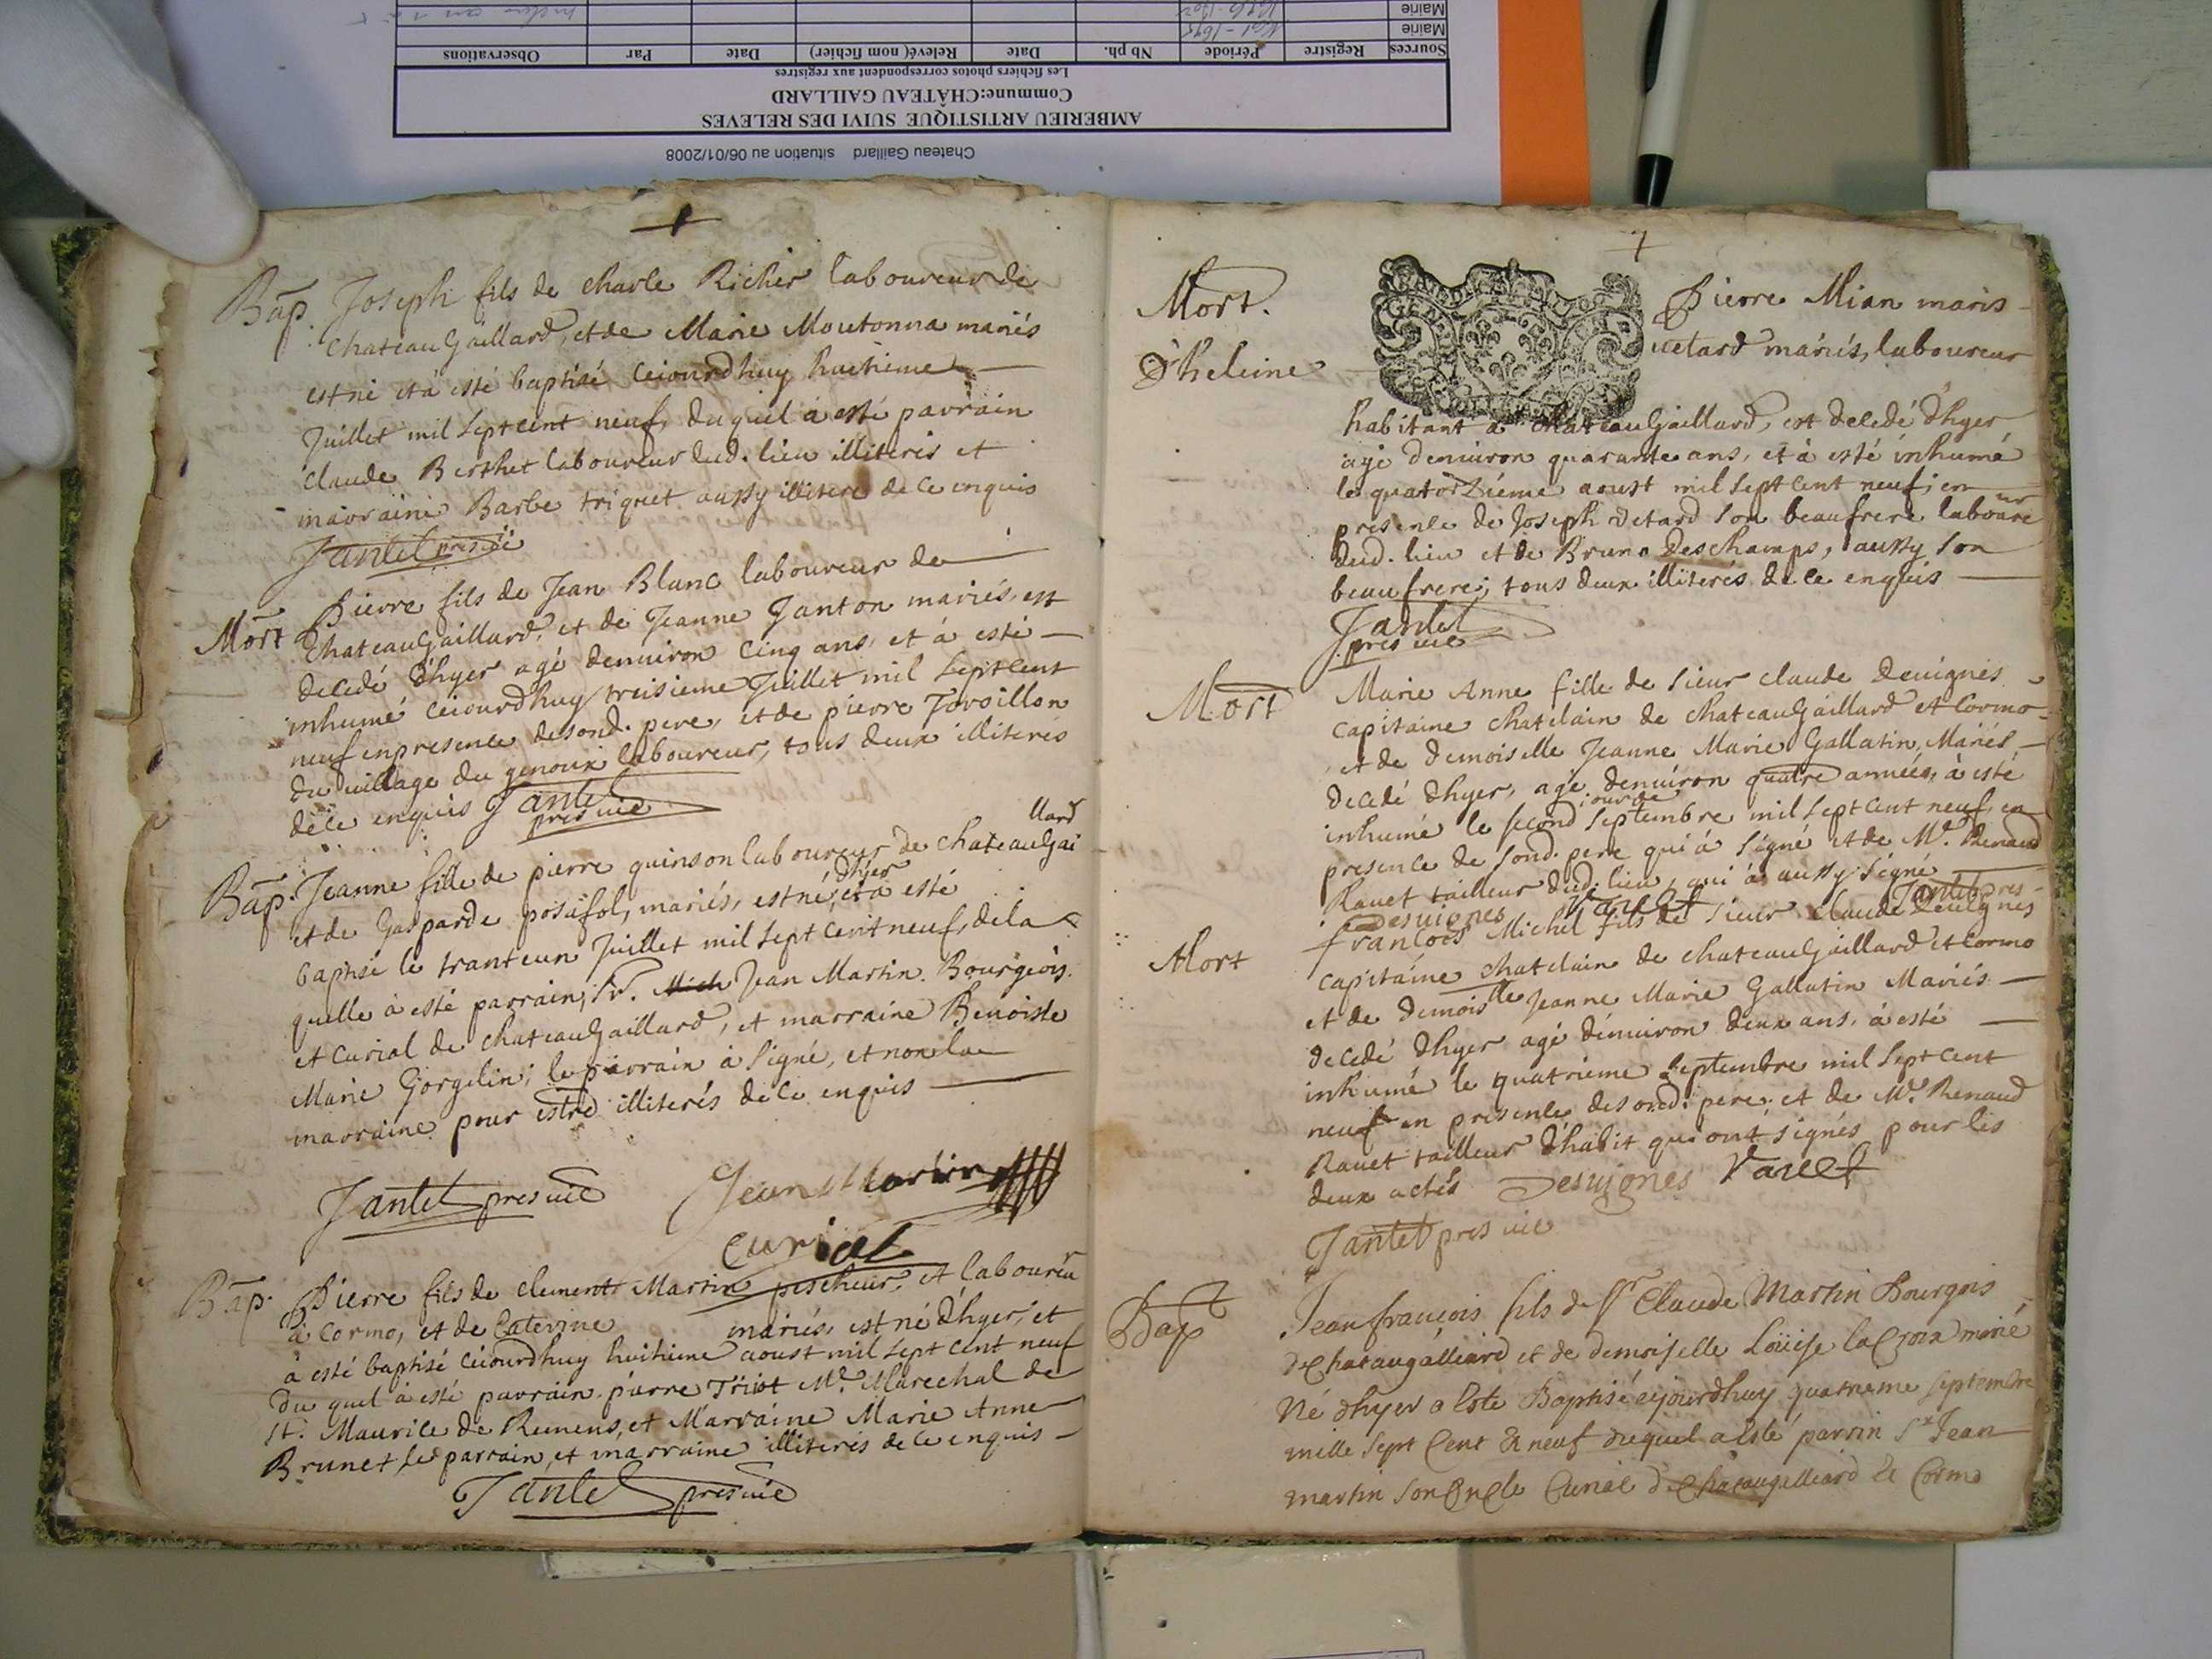 Chateau Gaillard situation au 06/01/2008
AMBERIEU ARTISTIQUE SUIVI DES RELEVES
Commune:CHÂTEAU GAILLARD
Les fichiers photos correspondent aux registres
Sources Registre Période Nb ph. Date Relevé( nom fichier) Date Par Observations
Mairie
Mairie
Bap. Joseph fils de charle Richer laboureur de
chateauGaillard, et de Marie Moutonna mariés
est né et à esté baptisé cejourdhuy huitieme
Juillet mil sept cent neuf, duquel à esté parrain
claude Berthet laboureur dud. lieu illiterés et
marraine Barbe triquet aussy illitere de ce enquis
Jantet pres vic
Mort Pierre fils de Jean Blanc laboureur de
chateauGaillard, et de Jeanne Janton mariés, est
decedé d'hyer agé denuiron cinq ans, et à esté
inhumé cejourdhuy treisieme Juillet mil sept cent
neuf en presence de sond. pere, et de pierre
du village du genoux laboureur, tous deux illiterés
de ce enquis Jantet
pres vic
Bap. Jeanne fille de pierre quinson laboureur de chateauGai
llard
et de Gasparde posafol, mariés, est né d'hyer, et à esté
baptisé le tranteun Juillet mil sept cent neuf, de la
quelle à esté parrain, Sr. Jean Martin Bourgeois
et curial de chateauGaillard, et marraine Benoiste
Marie Gorgelin; le parrain à signé, et non la
marraine pour estre illiterés de ce enquis
Jantet pres vic Jean Martin
Curial
Bap. Pierre fils de clement Martin pescheur, et laboureur
à Cormo, et de Caterine mariés, est né d'hyer, et
à esté baptisé cejourdhuy huitieme aoust mil sept cent neuf
du quel à esté parrain pierre Me. Marechal de
St. Maurice de Remens, et Marraine Marie Anne
Brunet, le parrain, et marraine illiterés de ce enquis
Jantet pres vic
Mort. Pierre Mian maris
D'heleine vetard mariés, laboureur
habitant à chateauGaillard, est decedé d'hyer
agé denuiron quarante ans, et à esté inhumé
le quatorzieme aoust mil sept cent neuf, en
presence de Joseph vetard son beaufrere laboureur
dud. lieu et de Bruno Deschamps, aussy son
beaufrere, tous deux illiterés de ce enquis
Jantet
pres vic
Mort Marie Anne fille de sieur claude Deuignes
capitaine chatelain de chateauGaillard et Cormo
et de demoiselle Jeanne Marie Gallatin, Mariés
decedé d'hyer, agé denuiron quatre années, à esté
inhumé le second jour de septembre mil sept cent neuf, en
presence de sond. pere qui à signé et de Me. Renaud
Rauet tailleur dud. lieu, qui à aussy signé
Desuignes Jantet pres
Mort francois Michel fils de sieur Claude Deuignes
capitaine chatelain de chateauGaillard et Cormo
et de demoiselle Jeanne Marie Gallatin Mariés
decedé d'hyer agé denuiron deux ans, à esté
inhumé le quatrieme septembre mil sept cent
neuf en presence de sond. pere, et de Me. Renaud
Rauet tailleur d'habit qui ont signés pour les
deux actes Desuignes Raueet
Jantet pres vic
Bap Jean francois fils de Sr Claude Martin Bourgois
de Chataugalliard et de demoiselle Loüise laCroix marié
né dhyer a Esté Baptisé cejourdhuy quatrieme septembre
mille sept Cent & neuf duquel a Esté parrin Sr Jean
martin son oncle Curial de Chataugalliard et Cormo